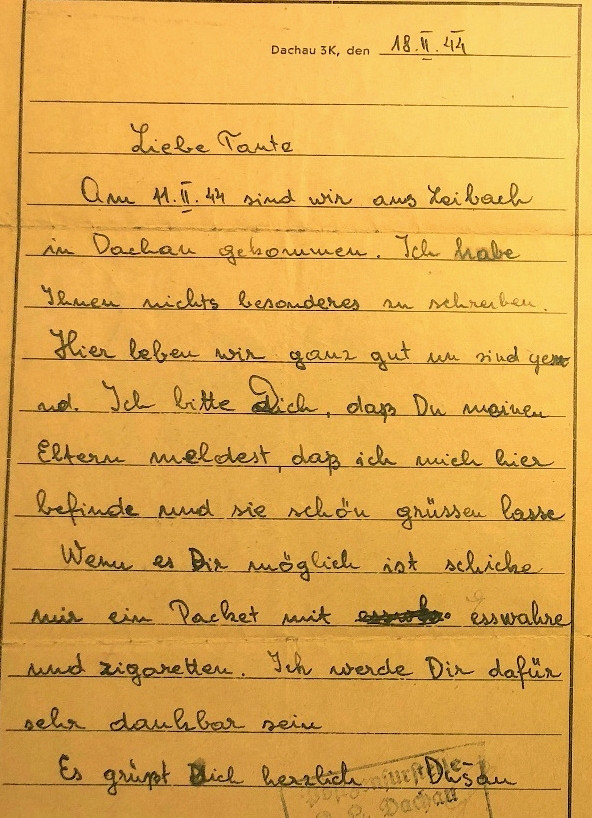 Dachau 3K, den 18.II.44
Liebe Tante
Am 11.II.44 sind wir aus Leibach
in Dachau gekommen. Ich habe
Ihnen nichts besonderes zu schreiben.
Hier leben wir ganz gut un sind gesu
nd. Ich bitte Dich, daß Du meinen
Eltern meldest, daß ich mich hier
befinde und sie schön grüssen lasse
Wenn es Dir möglich ist schicke
mir ein Packet mit esswahre
und zigaretten. Ich werde Dir dafür
sehr dankbar sein
Es grüßt Dich herzlich Dušan
Dachau